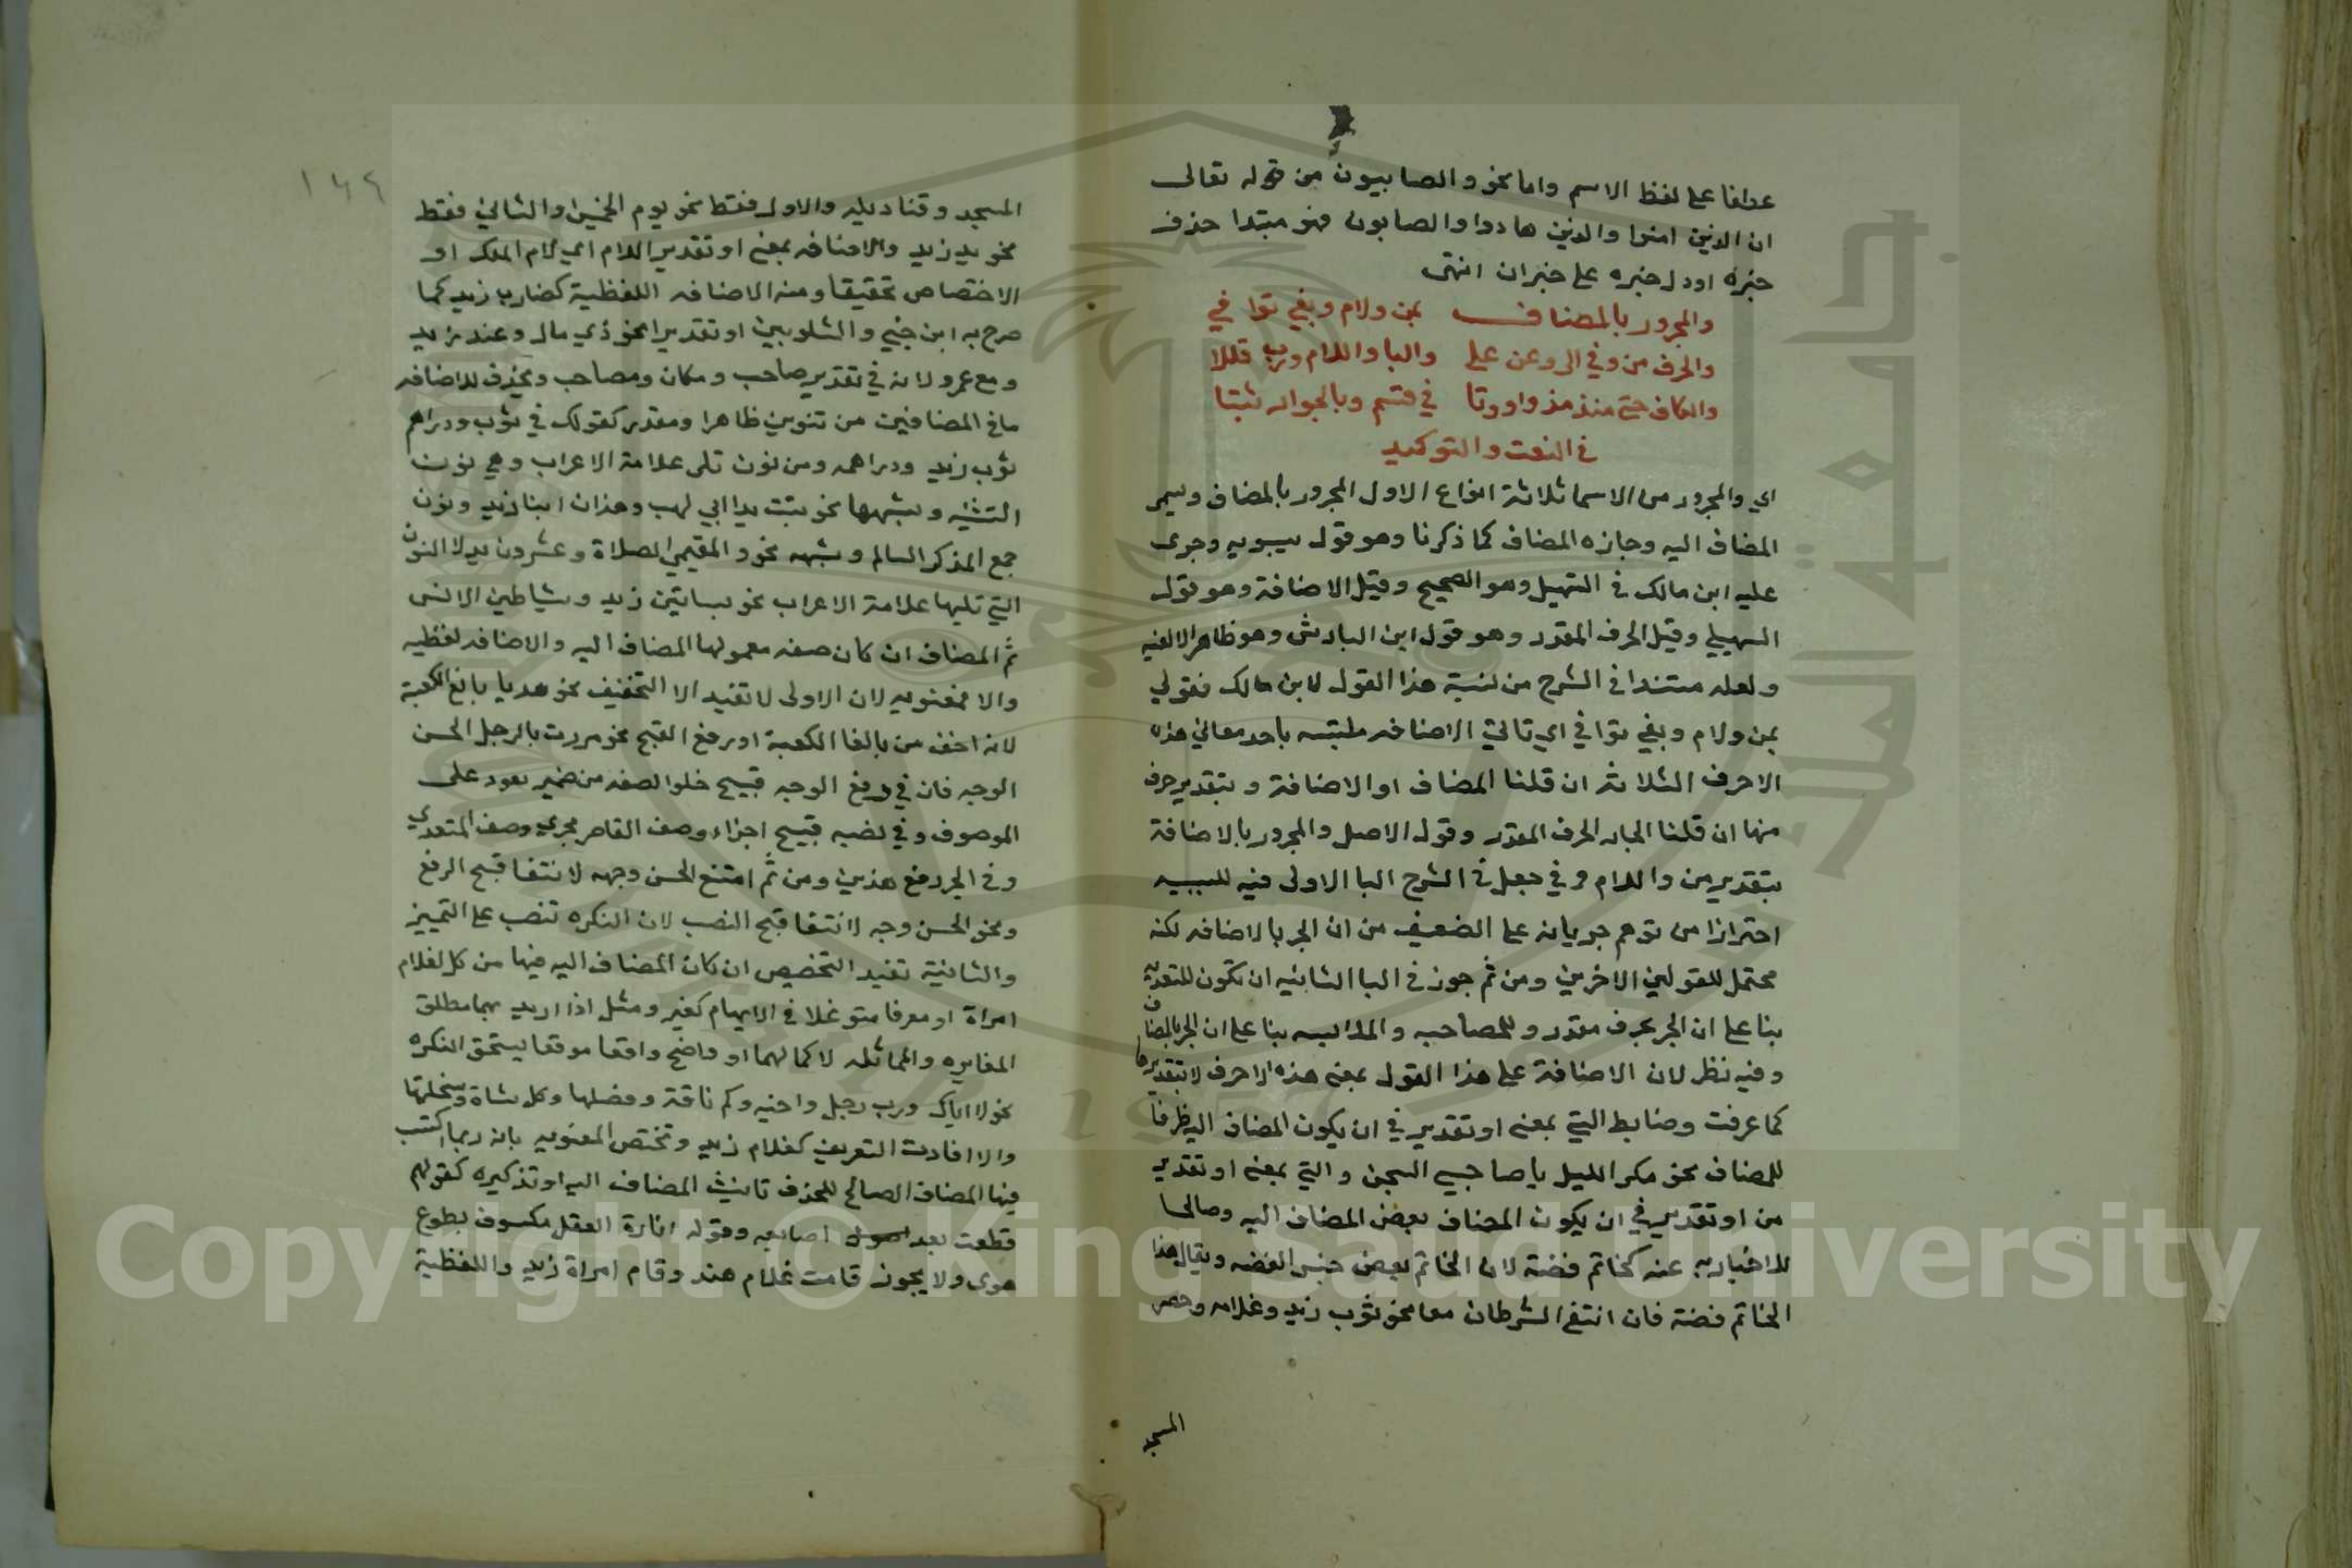 عطفا على لفظ الاسم واما نحو والصابيون من قوله تعالى
ان الذين امنوا والذين هادوا والصابون فهو مبتدا حذف
خبره اودل خبره على خبران انتهى
والمجرور بالمضاف بمن ولام وبفي توافي
والحرف من وفي الى وعن على والبا واللام ورب قللا
والكاف حتى منذ مذ واو وتا في قسم وبالجوار ثبتا
في النعت والتوكيد
اي والمجرور من الاسما ثلاثة انواع الاول المجرور بالمضاف ويسمى
المضاف اليه وجازه المضاف كما ذكرنا وهو قول سيبويه وجرى
عليه ابن مالك في التسهيل وهو الصحيح وقيل الاضافة وهو قول
السهيلي وقيل الحرف المقدر وهو قول ابن الباذش وهو ظاهر الالفيه
ولعله مستندا في الشرح من نسبة هذا القول لابن مالك فقولي
بمن ولام وبفي توافي اي تاتي الاضافه ملتبسه باحد معاني هذه
الاحرف الثلاثه ان قلنا المضاف او الاضافة وبتقدير حرف
منها ان قلنا الجار الحرف المقدر وقول الاصل والمجرور بالاضافة
بتقدير من واللام وفي جعل في الشرح البا الاولى فيه للسببيه
احترازا من توهم جريانه على الضعيف من ان الجر بالاضافه لكنه
محتمل للقولين الاخرين ومن ثم جوز في البا الثانيه ان تكون للتعديه
بنا على ان الجر بحرف مقدر وللمصاحبه والملابسه بنا على ان الجر بالمضاف
وفيه نظر لان الاضافة على هذا القول بمعنى هذه الاحرف لا بتقديرها
كما عرفت وضابط التي بمعنى او تقدير في ان يكون المضاف اليه ظرفا
للمضاف نحو مكر الليل يا صاحبي السجن والتي بمعنى او تقدير
من او تقديرها في ان يكون المضاف بعض المضاف اليه وصالحا
للاخبار به عنه كخاتم فضة لان الخاتم بعض جنس الفضه ويقال هذا
الخاتم فضة فان انتفى الشرطان معا نحو ثوب زيد وغلامه وحصر
المسجد
١٤٦
المسجد وقناديله والاول فقط نحو يوم الخميس والثاني فقط
نحو يد زيد والاضافه بمعنى او تقدير اللام اي لام الملك او
الاختصاص تحقيقا ومنه الاضافه اللفظية كضارب زيد كما
صرح به ابن جني والشلوبين او تقديرا نحو ذي مال وعند زيد
ومع عمرو لانه في تقدير صاحب ومكان ومصاحب ويحذف للاضافه
ما في المضافين من تنوين ظاهرا ومقدر كقولك في ثوب ودراهم
ثوب زيد ودراهمه ومن نون تلى علامة الاعراب وهي نون
التثنيه وشبهها نحو تبت يدا ابي لهب وهذان ابنا زيد ونون
جمع المذكر السالم وشبهه نحو والمقيمي الصلاة وعشرون يد لا النون
التي تليها علامة الاعراب نحو بساتين زيد وشياطين الانس
ثم المضاف ان كان صفه معمولها المضاف اليه والاضافه لفظيه
والا فمعنويه لان الاولى لا تفيد الا التخفيف نحو هديا بالغ الكعبة
لانه اخف من بالغا الكعبة او رفع القبح نحو مررت بالرجل الحسن
الوجه فان في رفع الوجه قبيح خلو الصفه من ضمير يعود على
الموصوف وفي نصبه قبيح اجراء وصف القاصر مجرى وصف المتعدي
وفي الجر دفع هذين ومن ثم امتنع الحسن وجهه لانتفا قبح الرفع
ونحو الحسن وجه لانتفا قبح النصب لان النكره تنصب على التمييز
والثانية تفيد التخصيص ان كان المضاف اليه فيها من كل لغلام
امراة او معرفا متوغلا في الابهام كغير ومثل اذا اريد بهما مطلق
المغايره والمماثله لا كمالهما او واضح واقعا موقعا يستحق النكره
نحو لا اباك ورب رجل واخيه وكم ناقة وفصلها وكل شاة وسخلتها
والا افادت التعريف كغلام زيد وتختص المعنويه بانه ربما اكتسب
فيها المضاف الصالح للحذف تانيث المضاف اليه او تذكيره كقولهم
قطعت بعد اصابعه وقوله انارة العقل مكسوف بطوع
هوى ولا يجوز قامت غلام هند وقام امراة زيد واللفظية
Copyright © King Saud University